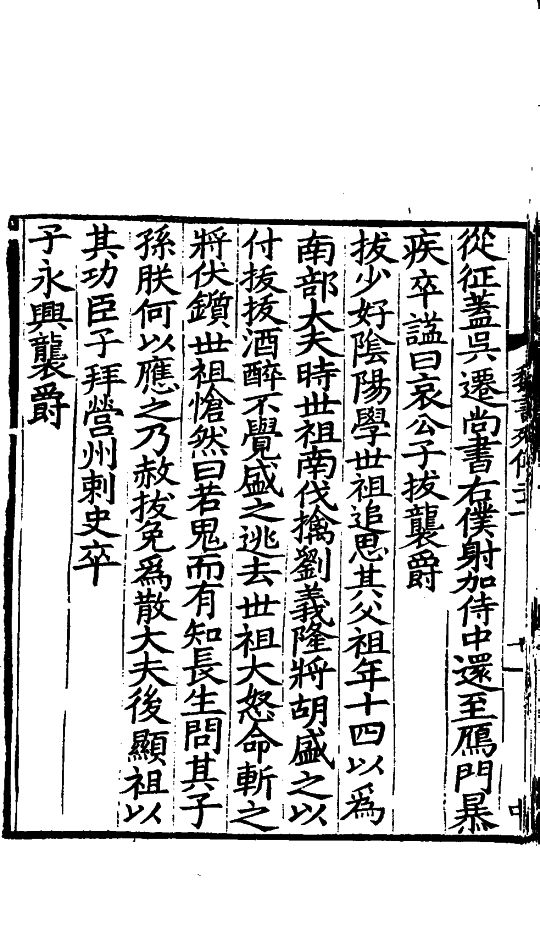 從征蓋吳遷尚書右僕射加侍中還至鴈門暴
疾卒謚曰哀公子拔襲爵
拔少好陰陽學世祖追思其父祖年十四以爲
南部大夫時世祖南伐擒劉義隆將胡盛之以
付拔拔酒醉不覺盛之逃去世祖大怒命斬之
將伏鑕世祖愴然曰若鬼而有知長生問其子
孫朕何以應之乃赦拔免爲散大夫後顯祖以
其功臣子拜營州刺史卒
子永興襲爵